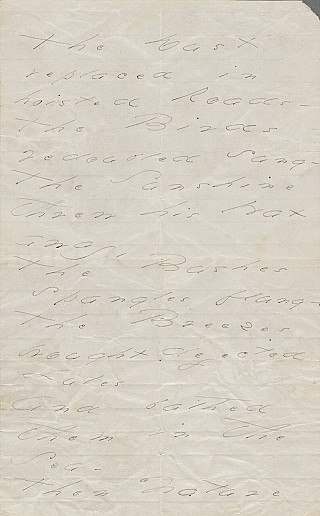 The Dust
replaced in
hoisted Roads -
The Birds
redoubled Sung -
The Sunshine
threw his hat
away
The Bushes
Spangles flung -
The Breezes
brought dejected
Lutes
And bathed
them in the
Sea -
Then Nature